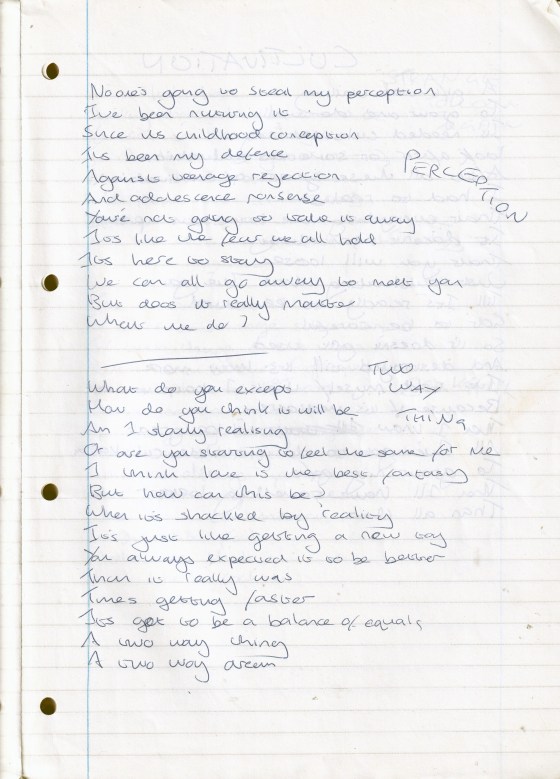 PERCEPTION
No one's going to steal my perception
I've been nurturing it
Since its childhood conception
It's been my defence
Against teenage rejection
And adolescence nonsense
You're not going to take it away
It's like the fear we all hold
It's here to stay
We can all go away to meet you
But does it really matter
What we do?
TWO WAY THING
What do you except
How do you think it will be
Am I slowly realising
Or are you starting to feel the same for me
I think love is the best fantasy
But how can this be?
When it's shackled by reality
It's just like getting a new toy
You always expected it to be better
Than it really was
Times getting faster
It's got to be a balance of equals
A two way thing
A two way dream